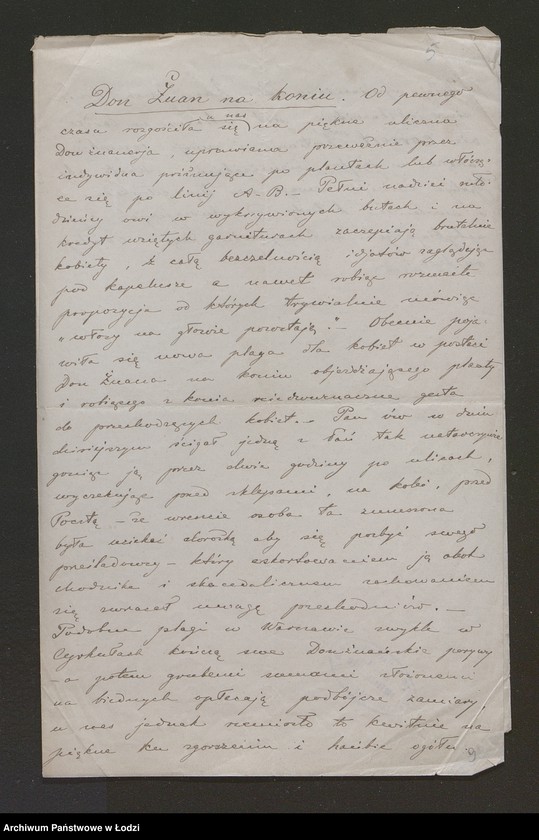 5
Don Żuan na koniu. Od pewnego
u nas
czasu rozgościła się na piękne uliczna
Donżuanerja, uprawiana przeważnie przez
indywidua próżnujące po plantach lub włóczą-
ce się po linij A-B. — Pełni nadziei mło-
dzieńcy owi w wykrzywionych butach i na
kredyt wziętych garniturach zaczepiają brutalnie
kobiety, z całą bezczelnością idjotów zaglądając
pod kapelusze a nawet robiąc rozmaite
propozycja od których trywialnie mówiąc
"włosy na głowie powstają". — Obecnie poja-
wiła się nowa plaga dla kobiet w postaci
Don Żuana na koniu objeżdżającego planty
i robiącego z konia niedwuznaczne gesta
do przechodzących kobiet. — Pan ów w dniu
dzisiejszym ścigał jedną z dań tak natarczywie
goniąc ją przez dwie godziny po ulicach,
wyczekując przed sklepami, na kolei, przed
Pocztą — że wreszcie osoba ta zmuszona
była uciekać dorożką aby się pozbyć swego
prześladowcy — który eskortowaniem ją obok
chodnika i skandalicznem zachowaniem
się zwracał uwagę przechodniów. —
Podobne plagi w Warszawie zwykle w
Cyrkułach kończą swe Donżuańskie porywy
— a potem grubemi sumami złożonemi
na biednych opłacają podbójcze zamiary,
u nas jednak rzemiosło to kwitnie na
piękne ku zgorszeniu i hańbie ogółu
Archiwum Państwowe w Łodzi